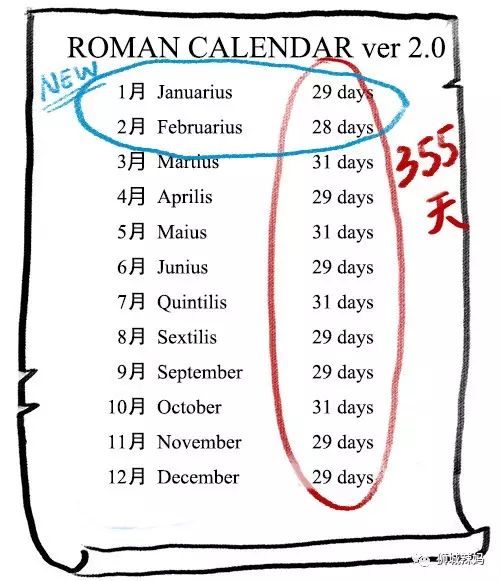 ROMAN CALENDAR ver 2.0
NEW
1月 Januarius 29 days
2月 Februarius 28 days
3月 Martius 31 days
4月 Aprilis 29 days
5月 Maius 31 days
6月 Junius 29 days
7月 Quintilis 31 days
8月 Sextilis 29 days
9月 September 29 days
10月 October 31 days
11月 November 29 days
12月 December 29 days
355
天
狮城辣妈